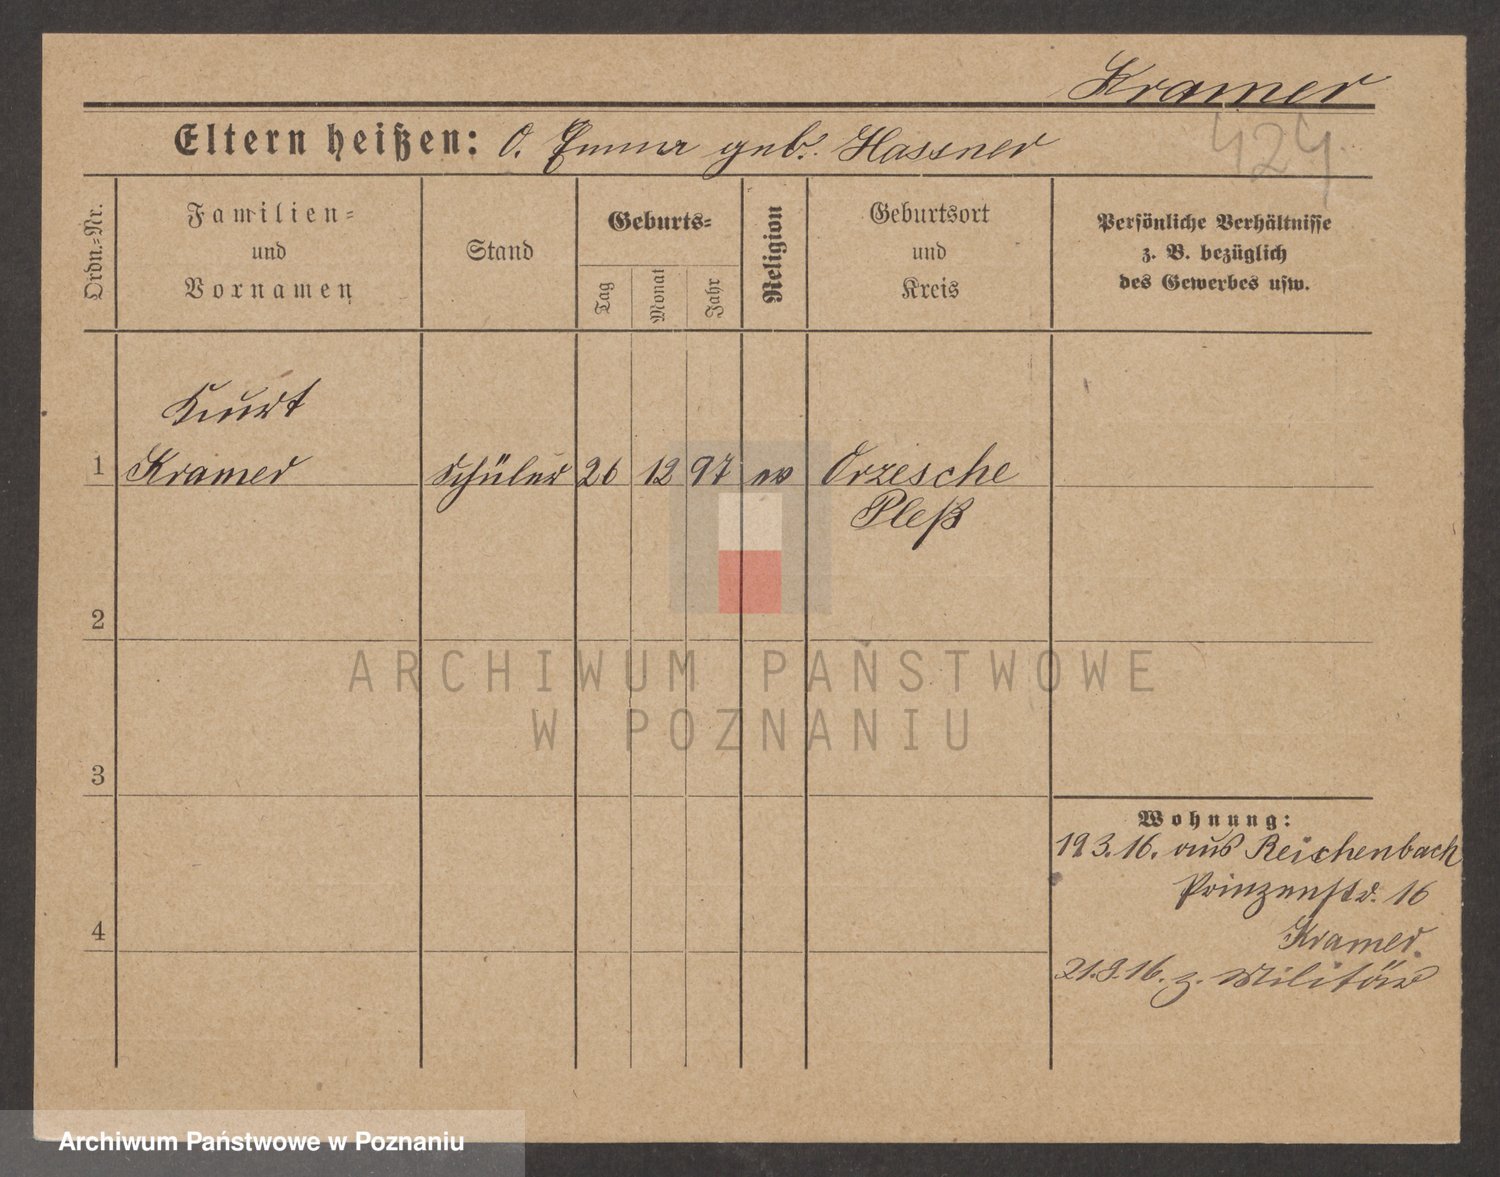 Kramer
Eltern heißen: O. Emma geb. Hassner
424
Ordn.=Nr.
Familien=
und
Vornamen
Stand
Geburts=
Tag
Monat
Jahr
Religion
Geburtsort
und
Kreis
Persönliche Verhältnisse
z. B. bezüglich
des Gewerbes usw.
Kurt
1 Kramer Schüler 26 12 97 ev Orzesche
Pleß
2
3
4
Wohnung:
19 3. 16. aus Reichenbach
Prinzenstr. 16
Kramer.
21.3.16. z. Militär
ARCHIWUM PAŃSTWOWE
W POZNANIU
Archiwum Państwowe w Poznaniu